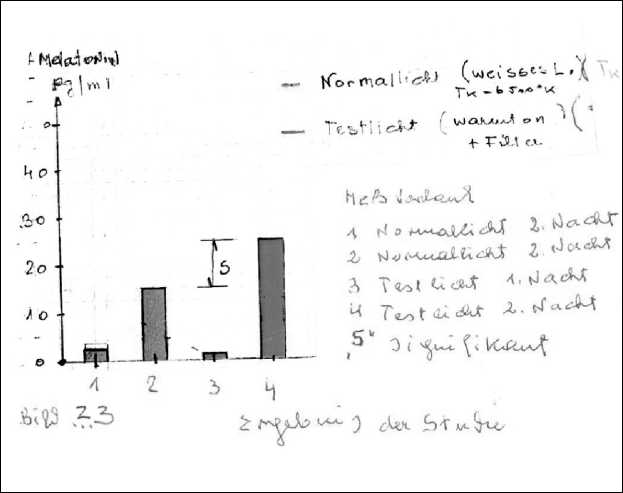 Melatonin
Pg/ml
Normallicht (weisses L.)
Tk=6500°K
Testlicht (warmton
+ Filter
40
30
20
10
0
S
1 2 3 4
Meßverlauf
1 Normallicht 2. Nacht
2 Normallicht 2. Nacht
3 Testlicht 1. Nacht
4 Testlicht 2. Nacht
"S" signifikant
Bild 2.3
Ergebnis der Studie